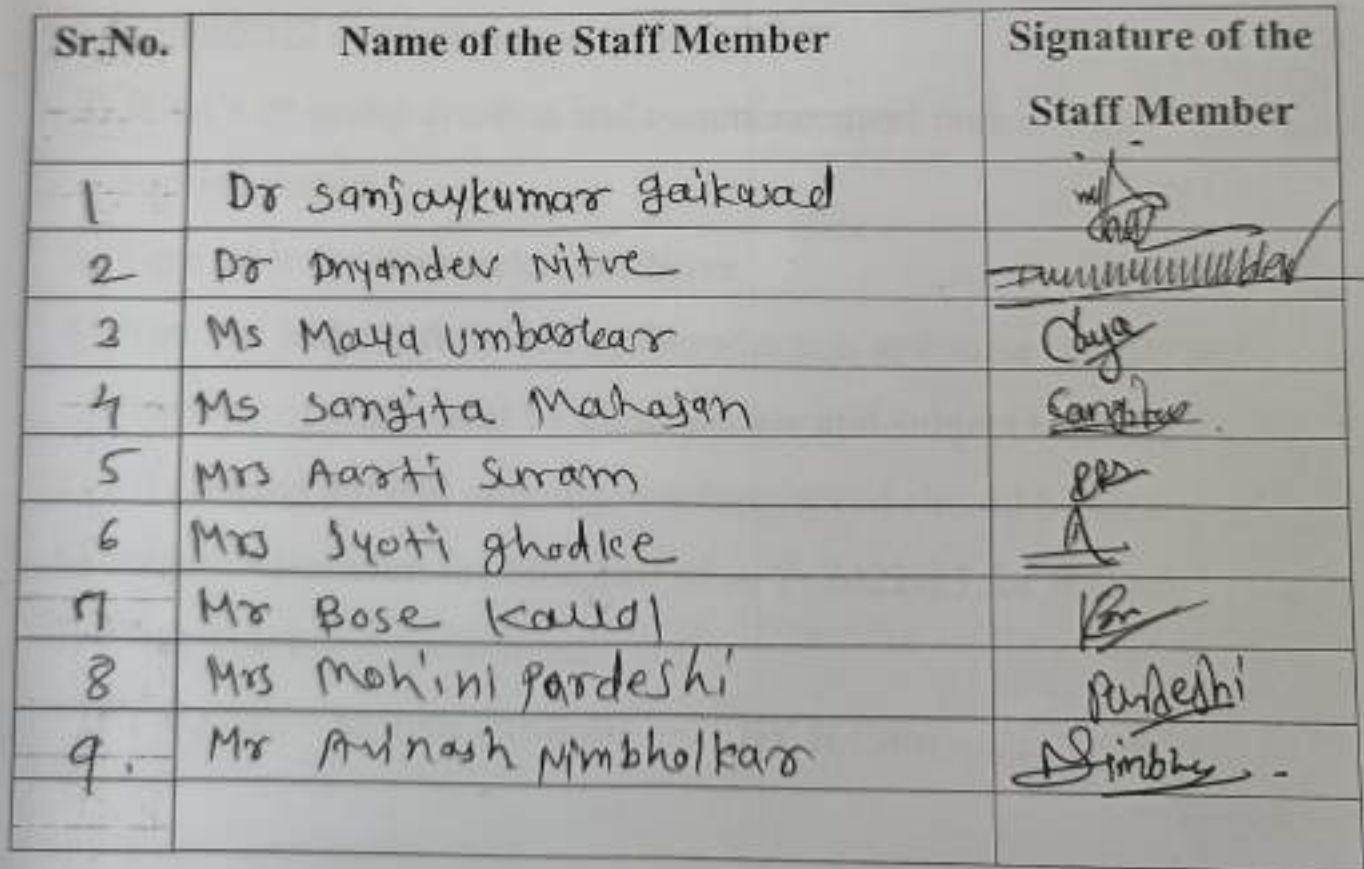 Sr.No. Name of the Staff Member Signature of the Staff Member
1 Dr Sanjaykumar gaikwad
2 Dr Dnyandev Nitve
3 Ms Maya Umbarkar
4 Ms Sangita Mahajan Sangita
5 Mrs Aarti Surram
6 Mrs Jyoti ghodke
7 Mr Bose
8 Mrs Mohini Pardeshi Pardeshi
9. Mr Avinash Nimbholkar